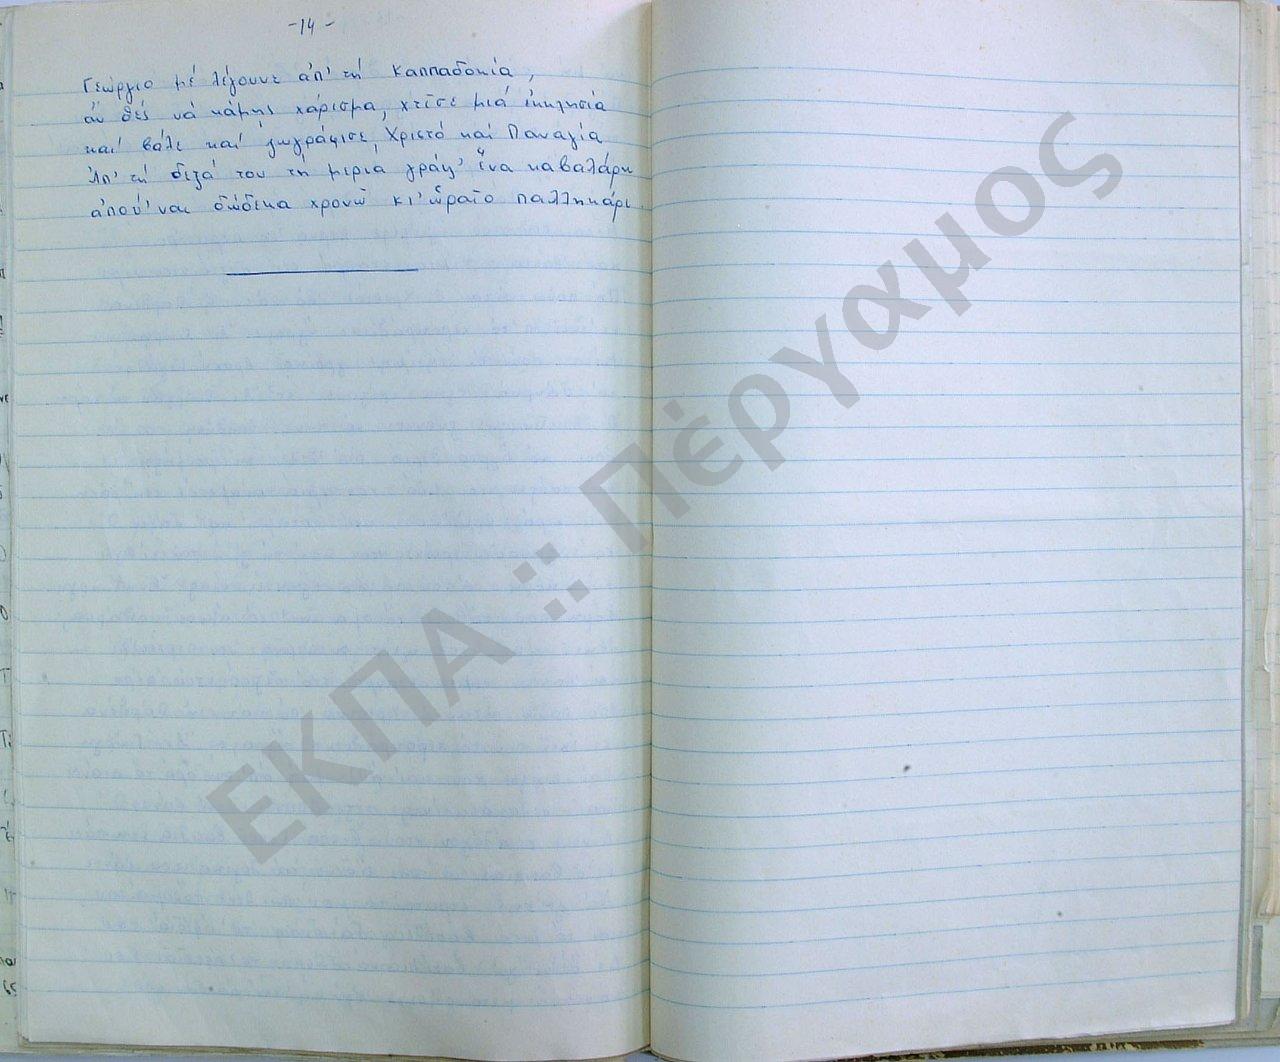 -14-
Γεώργιο μέ λέγουνε ἀπ' τή Καππαδοκία,
ἄν θές νά κάμης χάρισμα, χτίσε μιά ἐκκλησία
καί βάλε καί ζωγράφισε, Χριστό καί Παναγία
Ἀπ' τή δεξά του τή μεριά γράψ' ἕνα καβαλάρη
ἀπού' ναι δώδεκα χρονῶ κι' ὡραῖο παλληκάρι
ΕΚΠΑ :: Πέργαμος